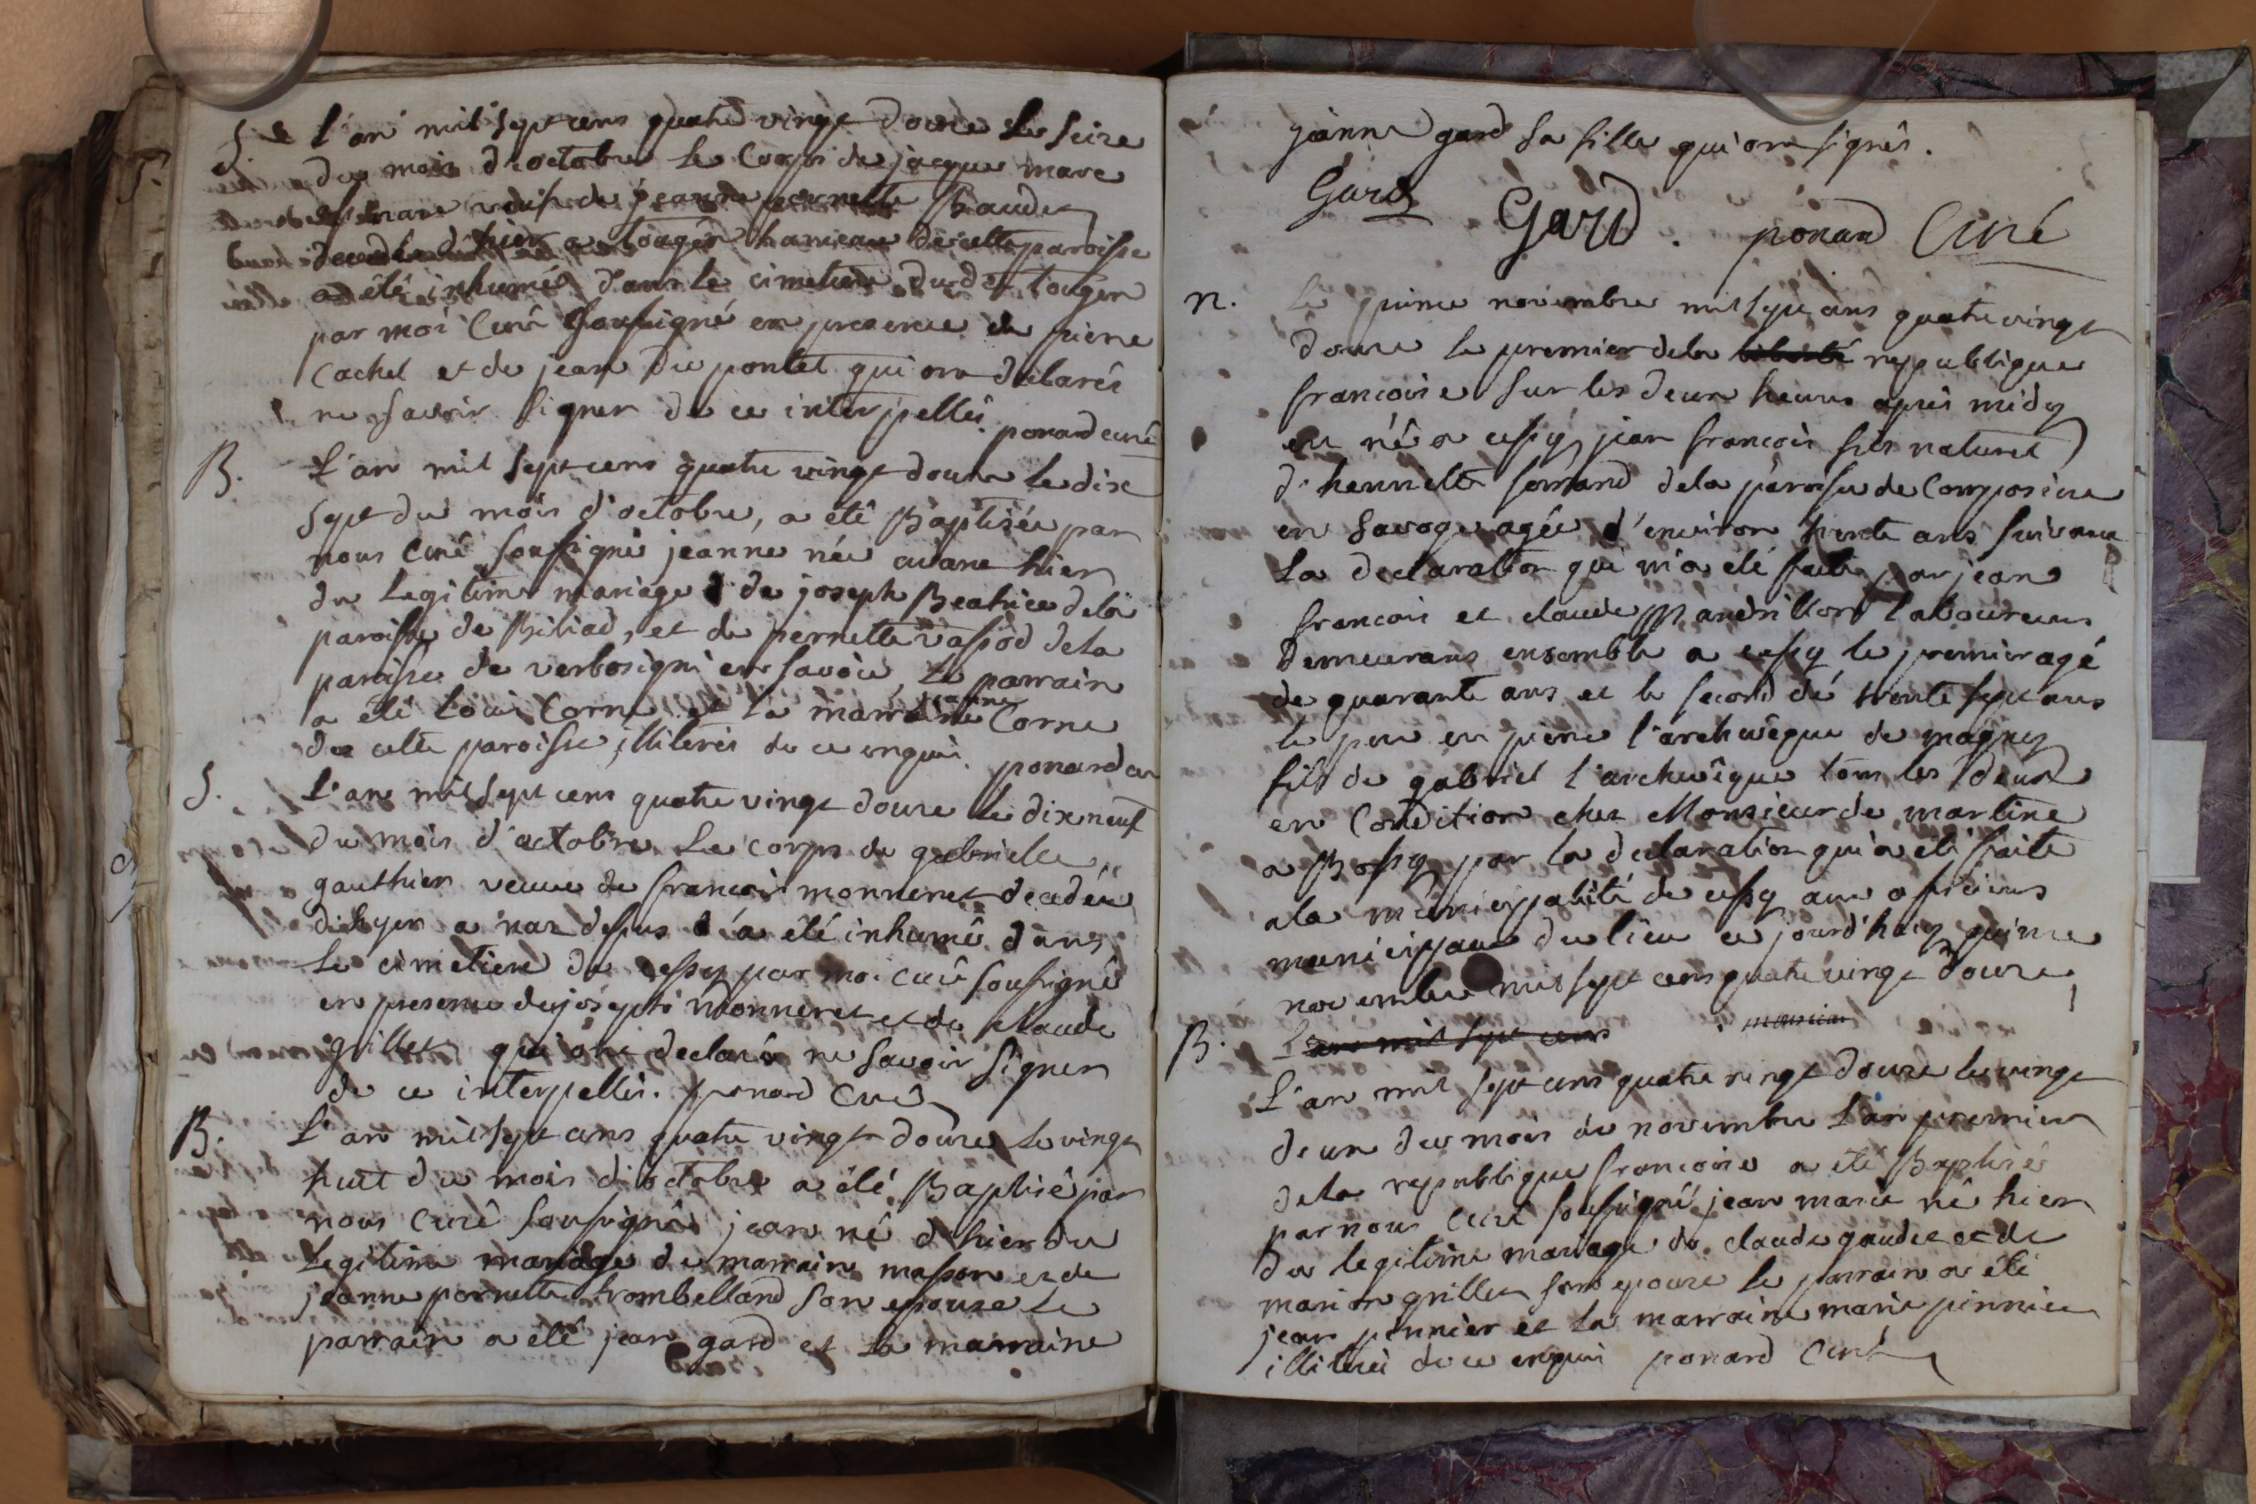 S. L'an mil sept cens quatre vingt douze le seize
du mois d'octobre le corps de jacque marc
veuf de jeanne pernette Baudet
decedé d'hier a tougin hameau de cette paroisse
a été inhumé dans le cimetiere dudit tougin
par moi Curé soussigné en presence de pierre
Cachet et de jean Du pontet qui ont declarés
ne savoir signer de ce interpellés. ponard curé
B. L'an mil sept cens quatre vingt douze le dix
sept du mois d'octobre, a été Baptisée par
nous Curé soussigné jeanne née avant hier
du Legitime mariage de joseph Beatrice dela
paroisse de Biliad, et de pernette vassod dela
paroisse de verbosigni en savoie, le parrain
a été Loui Corne et la marraine jeanne Corne
de cette paroisse, illiterés de ce enquis. ponard cu
S. L'an mil sept cens quatre vingt douze le dix neuf
du mois d'octobre Le corps de gabrielle
gauthier veuve de francois monneret decedée
d'hyer a naz dessus a été inhumé dans
le cimetiere de cessy par moi curé soussigné
en presence de joseph monneret et de claude
grillet qui ont declaré ne savoir signer
de ce interpellés. ponard Curé
B. L'an mil sept cens quatre vingt douze le vingt
huit du mois d'octobre a été Baptisé par
nous Curé soussigné jean né d'hier du
Legitime mariage de marraine masson et de
jeanne pernette trombelland son epouse le
parrain a été jean gard et la marraine
jeanne gard sa fille qui ont signés.
Gard Gard. ponard Curé
n. Le quinze novembre mil sept cens quatre vingt
douze le premier dela liberté republique
francoise sur les deux heures après midy
est né a cessy jean francois fils naturel
d'henriette ferrand dela paroisse de Composiere
en savoye agée d'environ trente ans suivant
la declaration qui m'a été faite par jean
francois et claude Mandrillon laboureurs
demeurans ensemble a cessy le premier agé
de quarante ans et le second de trente sept ans
le pere est pierre l'archevêque de magny
fils de gabriel l'archevêque tous les deux
en Condition chez Monsieur de martine
a Bossy par la declaration qui a été faite
ala municipalité de cessy aux officiers
municipaux du lieu ce jourd'huy quinze
novembre mil sept cens quatre vingt douze
B. L'an mil sept cens
L'an mil sept cens quatre vingt douze le vingt
deux du mois de novembre l'an premier
dela republique francoise a été Baptisé
par nous Curé soussigné jean marie né hier
du legitime mariage de claude gaudet et de
marion grillet son epouse le parrain a été
jean pennier et la marraine marie pinnier
illiterés de ce enquis ponard Curé